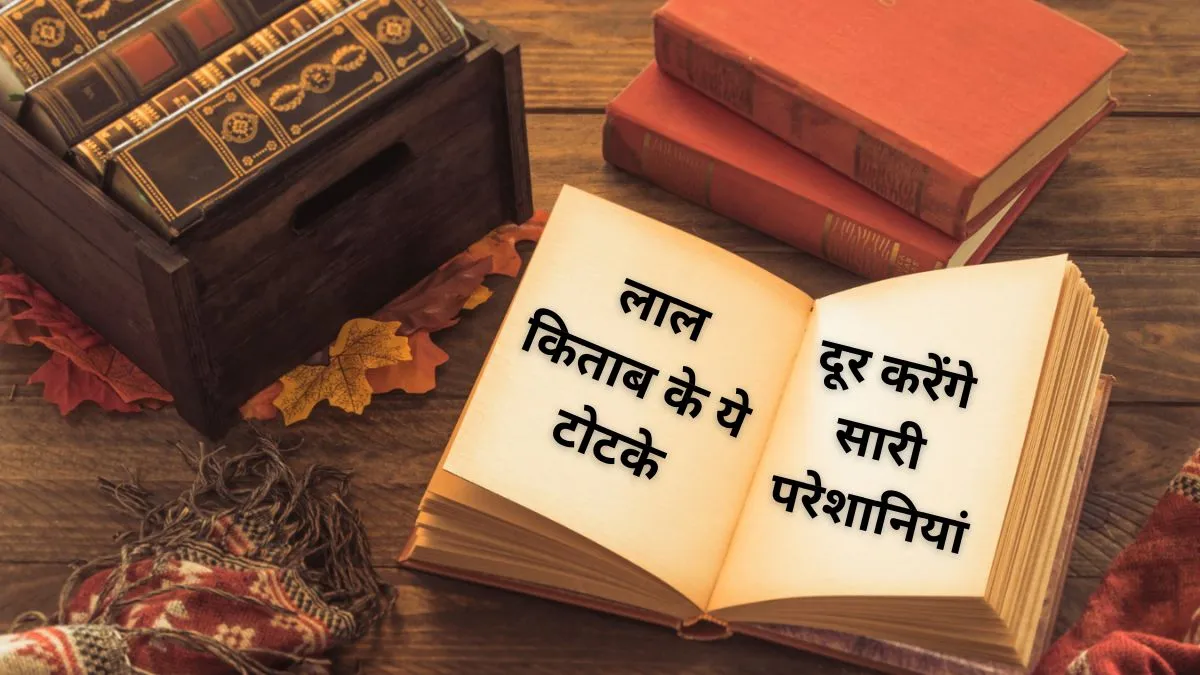 लाल
किताब के ये
टोटके
दूर करेंगे
सारी
परेशानियां